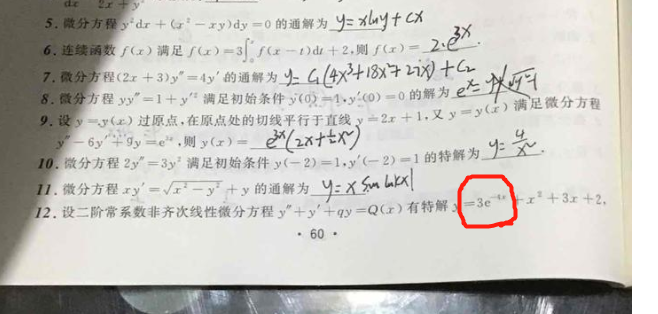 dx 2x+y
5. 微分方程 y²dx+(x²-xy)dy=0 的通解为 y=xlny+cx
6. 连续函数 f(x) 满足 f(x)=3∫₀ˣ f(x-t)dt+2,则 f(x)= 2·e^{3x}.
7. 微分方程(2x+3)y″=4y′ 的通解为 y=C₁(4x³+18x²+27x)+C₂
8. 微分方程 yy″=1+y′² 满足初始条件 y(0)=1,y′(0)=0 的解为 eˣ=
9. 设 y=y(x) 过原点,在原点处的切线平行于直线 y=2x+1,又 y=y(x) 满足微分方程
y″-6y′+9y=e^{3x},则 y(x)= e^{3x}(2x+½x²)
10. 微分方程 2y″=3y² 满足初始条件 y(-2)=1,y′(-2)=1 的特解为 y=4/x².
11. 微分方程 xy′=√(x²-y²)+y 的通解为 y=x sin ln|cx|
12. 设二阶常系数非齐次线性微分方程 y″+y′+qy=Q(x) 有特解 y=3e^{-4x}+x²+3x+2,
· 60 ·